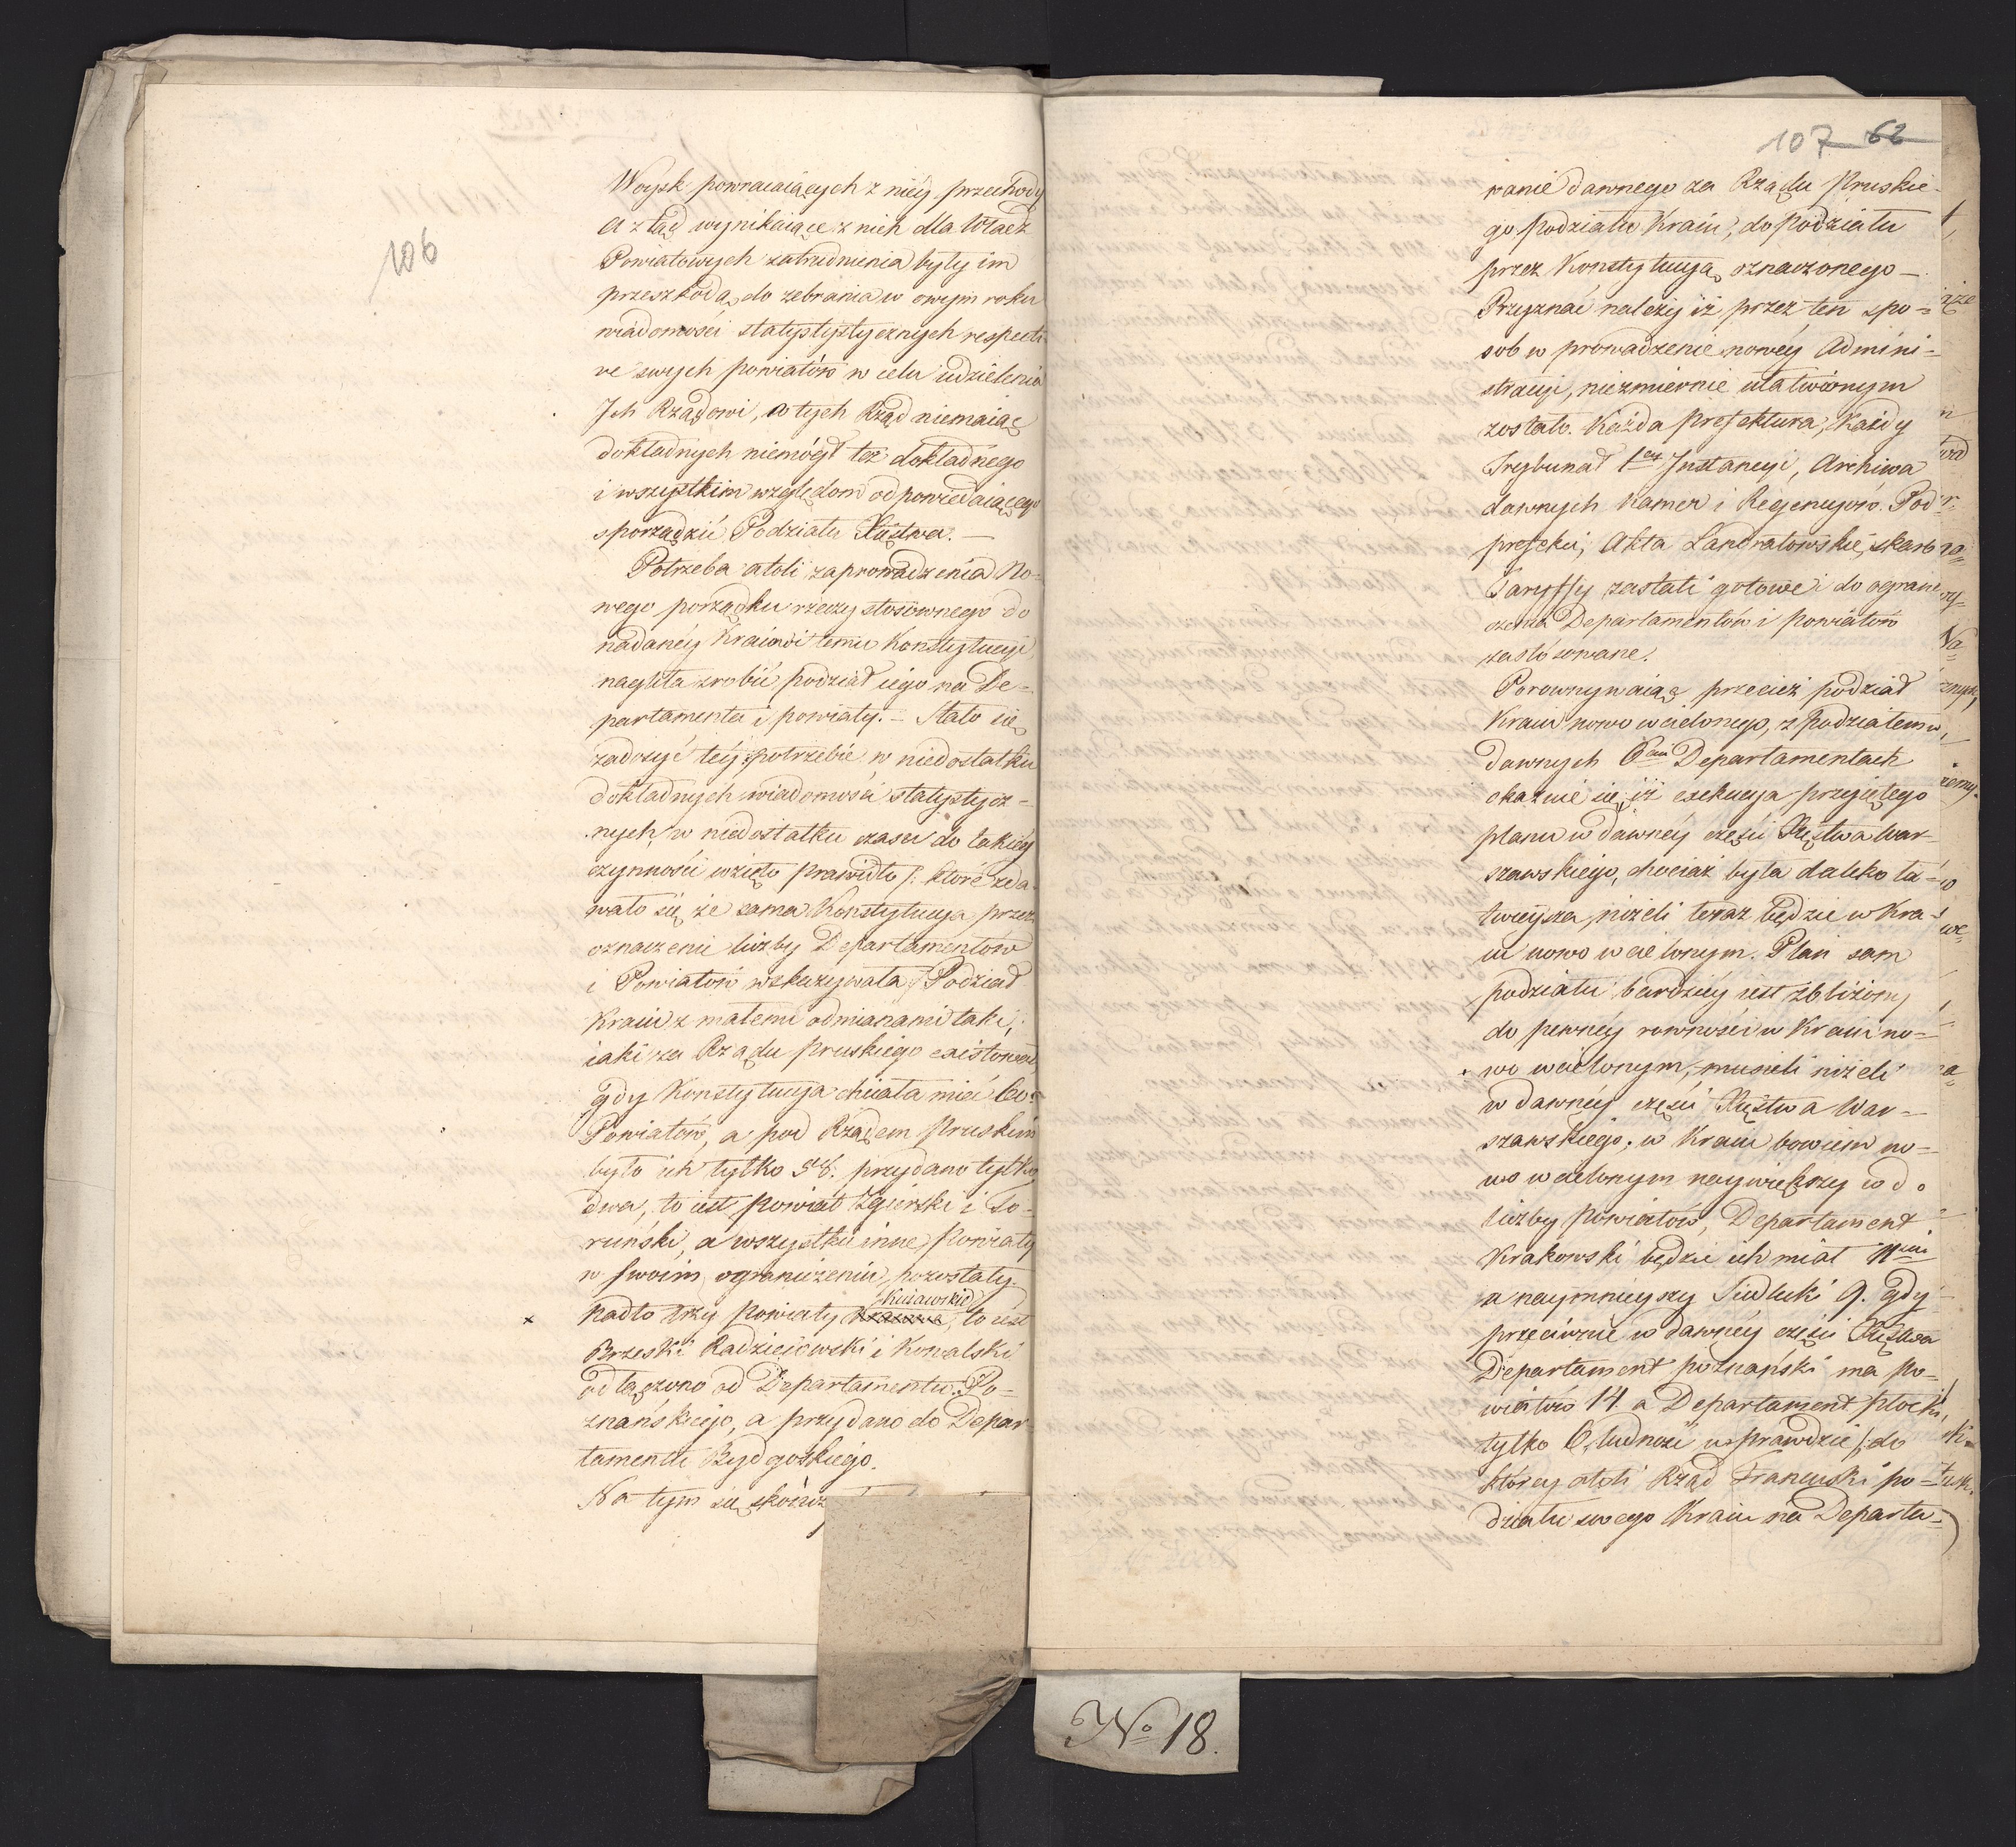 106
Woysk powracaiących z niéy przechody
a ztąd wynikaiące z nich dla Władz
Powiatowych zatrudnienia były im
przeszkodą do zebrania w owym roku
wiadomości statystystycznych respecti
ve swych powiatów w celu udzielenia
Ich Rządowi, a tych Rząd niemaiąc
dokładnych niemógł też dokładnego
i wszystkim względom odpowiedaiącego
sporządzić Podziału Xięstwa. —
Potrzeba atoli zaprowadzenia No-
wego porządku rzeczy stosownego do
nadanéy Kraiowi temu Konstytucyi,
nagliła zrobić podział iego na De-
partamenta i powiaty. — Stało się
zadosyć téy potrzebie, w niedostatku
dokładnych wiadomości statystycz-
nych, w niedostatku czasu do takiéy
czynności wzięto prawidło /: które zda-
wało się że sama Konstytucyja przez
oznaczenie liczby Departamentów
i Powiatów wskazywała :/ Podział
Kraiu z małemi odmianami taki,
iaki za Rządu Pruskiego existował
gdy Konstytucyja chciała mieć 60.
Powiatów, a pod Rządem Pruskim
było ich tylko 58. przydano tylko
dwa, to iest powiat Zgierski i To-
ruński, a wszystkie inne powiaty
w swoim ograniczeniu pozostały.
Kuiawskie
× Nadto trzy powiaty, to iest
Brzeski Radzieiowski i Kowalski
odłączono od Departamentu Po-
znańskiego, a przydano do Depar
tamentu Bydgoskiego.
Na tym się skończ
107 62
wanie dawnego za Rządu Pruskie-
go podziału Kraiu, do podziału
przez Konstytucyją oznaczonego —
Przyznać należy iż przez ten spo-
sob wprowadzenie nowéy Admini-
stracyi, niezmiernie ułatwionym
zostało. Każda prefektura, Każdy
Trybunał 1ey Instancyi, Archiwa
dawnych Kamer i Regencyów. Pod
prefekci, Akta Landratowskie, skarb
Taryffy zastali gotowe i do ograni
czenia Departamentów i powiatów
zastósowane.
Porownywaiąc przecież podział
Kraiu nowo wcielonego, z podziałem w
dawnych 6ciu Departamentach
okazuie się, iż exekucyja przyiętego
planu w dawnéy części Xięstwa War-
szawskiego, chociaż była daleko ła-
twieysza, niżeli teraz będzie w Kra-
iu nowo wcielonym. Plan sam
podziału bardziéy iest zbliżony
do pewnéy rowności w Kraiu no-
wo wcielonym, niżeli
w dawnéy części Xięstwa War-
szawskiego; w Kraiu bowiem no-
wo wcielonym naywiększy co do
liczby powiatów, Departament
Krakowski będzie ich miał
a naymnieyszy Siedlecki 9. gdy
przeciwnie w dawnéy części Xięstwa
Departament poznański ma po-
wiatów 14. a Departament płocki,
tylko 6, ludność wprawdzie /: do
któréy atoli Rząd Francuski po-
działu swego Kraiu na Departa-
No 18.